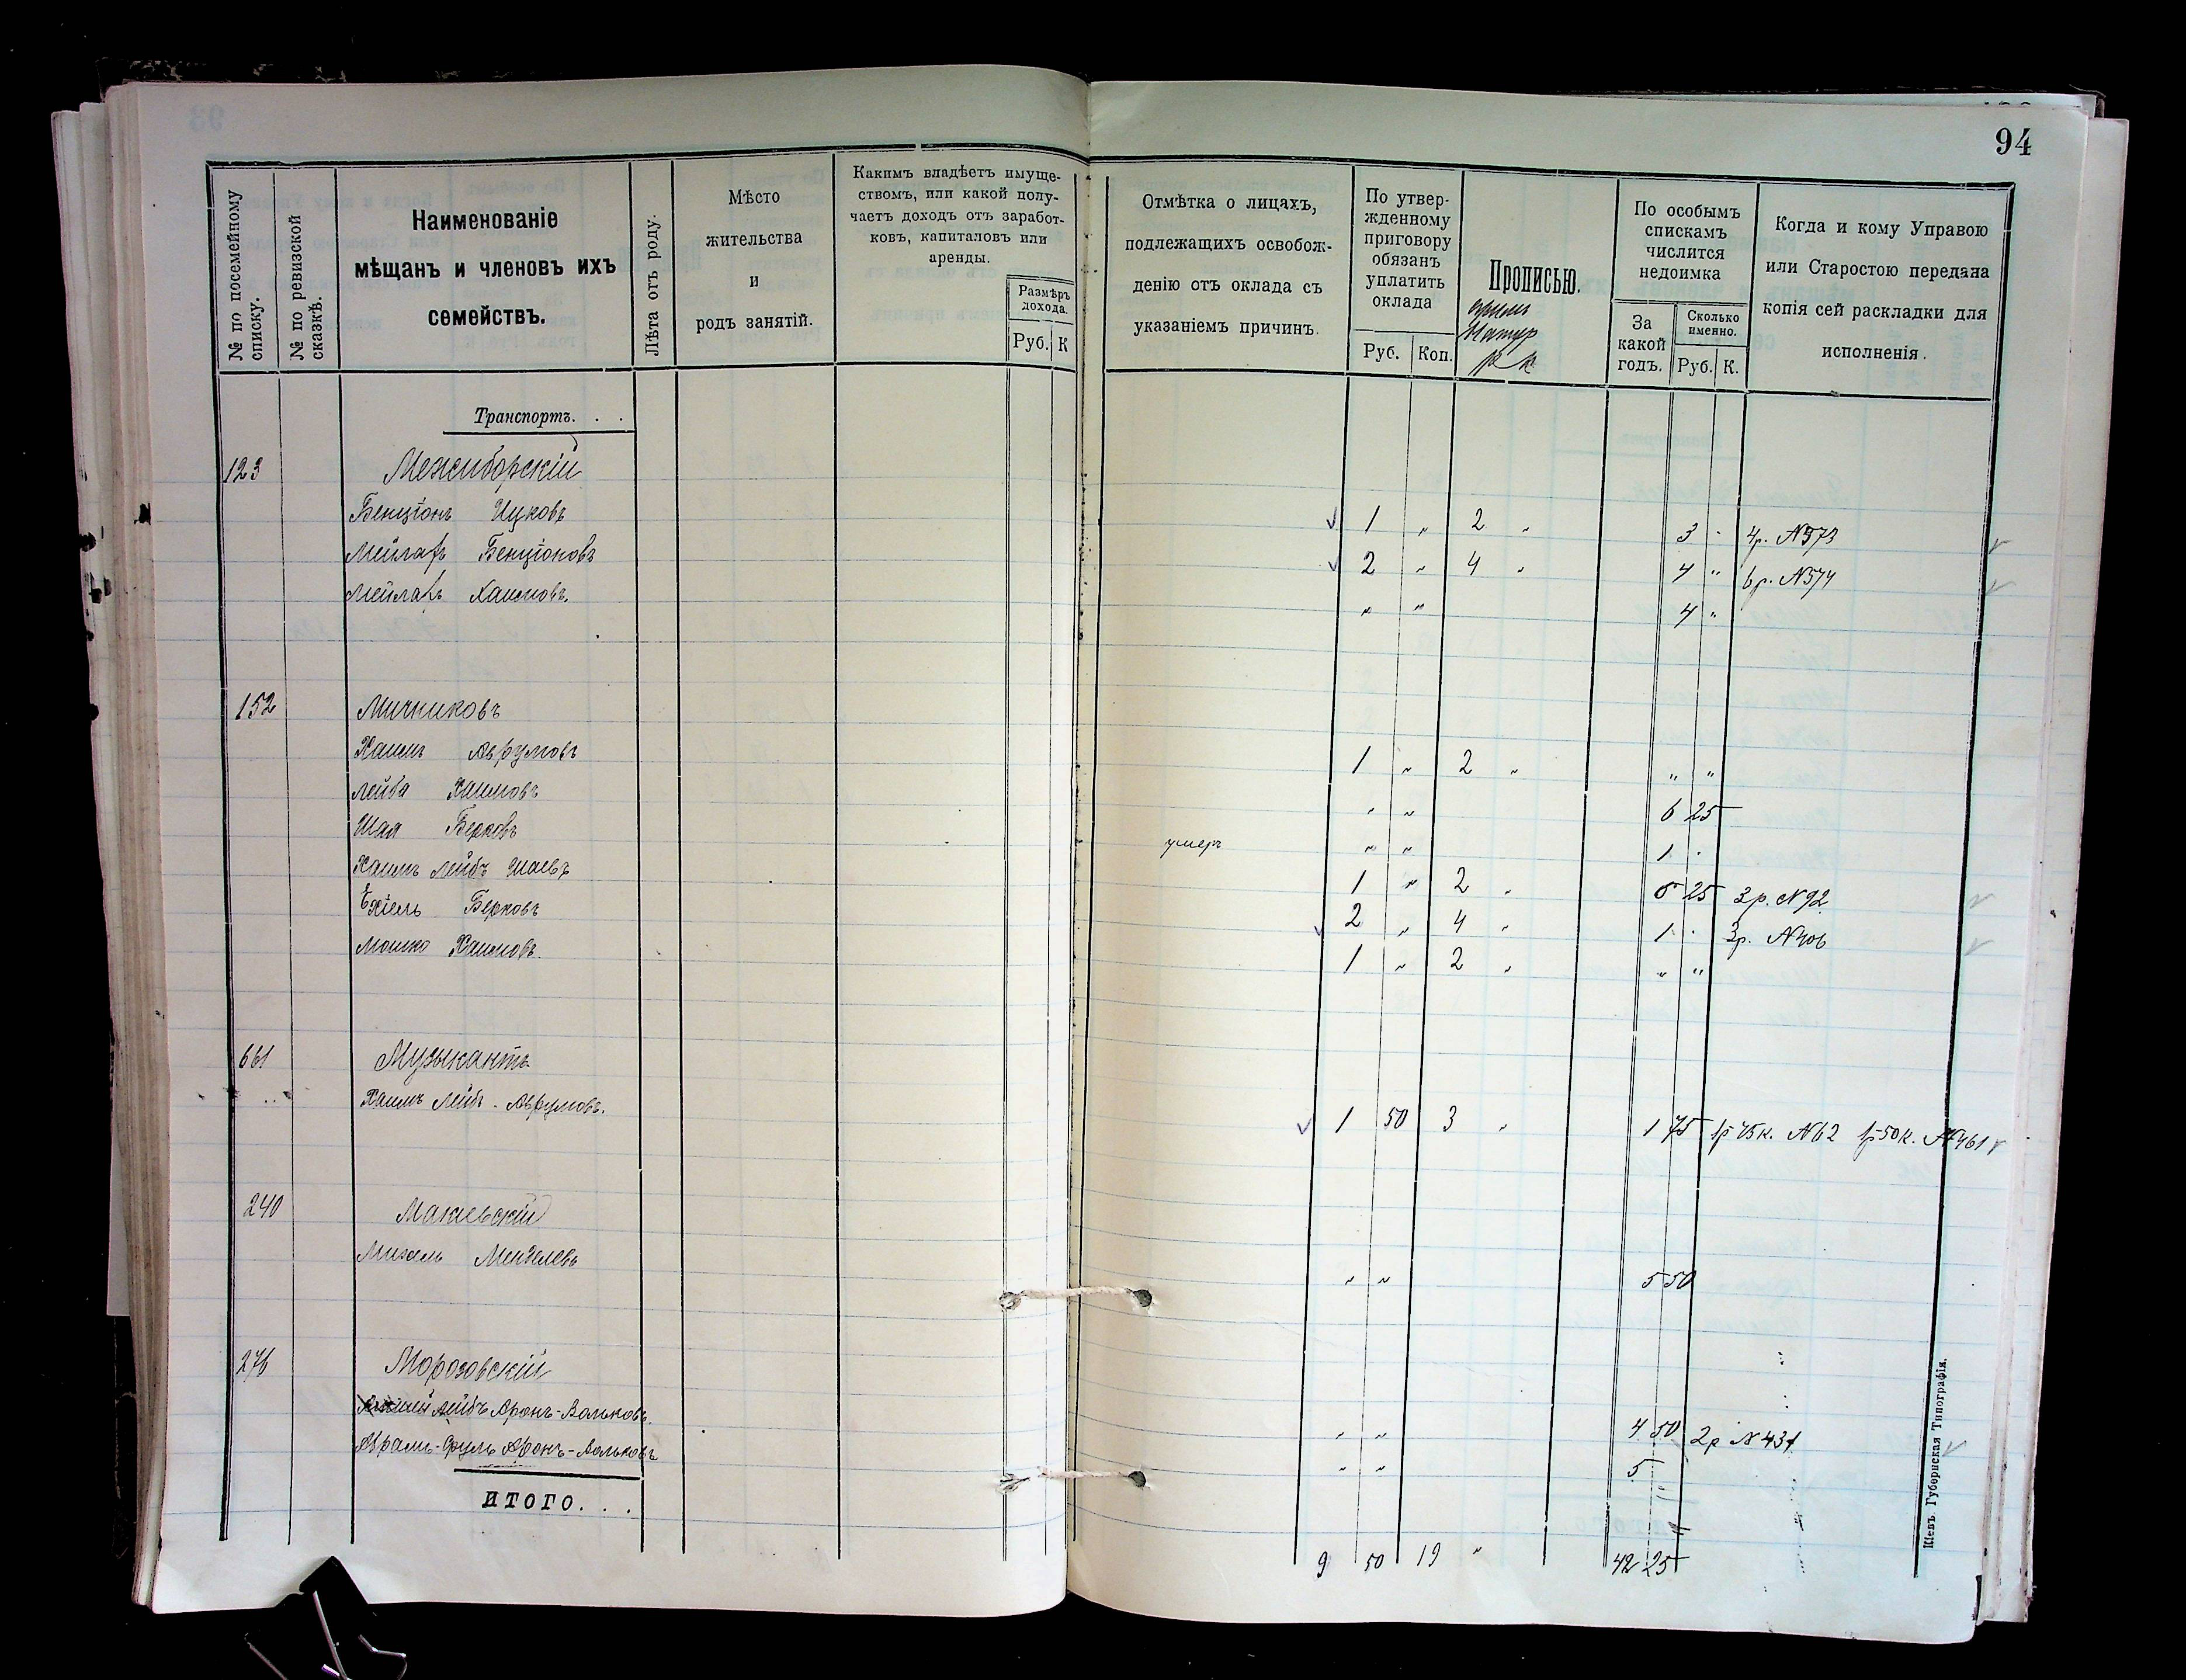 94
№ по посемейному списку.
№ по ревизской сказкѣ.
Наименованіе
мѣщанъ и членовъ ихъ
семействъ.
Лѣта отъ роду.
Мѣсто
жительства
и
родъ занятій.
Какимъ владѣетъ имуще-
ствомъ, или какой полу-
чаетъ доходъ отъ заработ-
ковъ, капиталовъ или
аренды.
Размѣръ
дохода.
Руб. К
Отмѣтка о лицахъ,
подлежащихъ освобож-
денію отъ оклада съ
указаніемъ причинъ.
По утвер-
жденному
приговору
обязанъ
уплатить
оклада
Руб. Коп.
Прописью.
р к
По особымъ
спискамъ
числится
недоимка
За
какой
годъ.
Сколько
именно.
Руб. К.
Когда и кому Управою
или Старостою передана
копія сей раскладки для
исполненія.
Транспортъ. . .
123 Межиборскій
Бенціонъ Ицковъ 1 „ 2 „ 3 „ 4р. №573
Мейлахъ Бенціоновъ 2 „ 4 „ 4 „ 6р. №574
Мейлахъ Хаимовъ. „ „ 4 „
152 Мичниковъ
Хаимъ Аврумовъ 1 „ 2 „ „ „
Лейба Хаимовъ „ „ 6 25
Шая Берковъ умеръ „ „ 1 „
Хаимъ Лейбъ Шаевъ 1 „ 2 „ 5 25 3р. №92
Ехіель Берковъ 2 „ 4 „ 1 „ 3р. №406
Мошко Хаимовъ. 1 „ 2 „ „ „
661 Музыкантъ
Хаимъ Лейбъ - Аврумовъ. 1 50 3 „ 1 75 1р 75к. №62 1р 50к. №461
240 Макаевскій
Михель Менделевъ „ „ 5 50
276 Морозовскій
Лейбъ Аронъ-Вольковъ. „ „ 4 50 2р №431
Аврамъ-Сруль Аронъ-Вольковъ „ „ 5
ИТОГО. . .
9 50 19 „ 42 25
Кіевъ. Губернская Типографія.